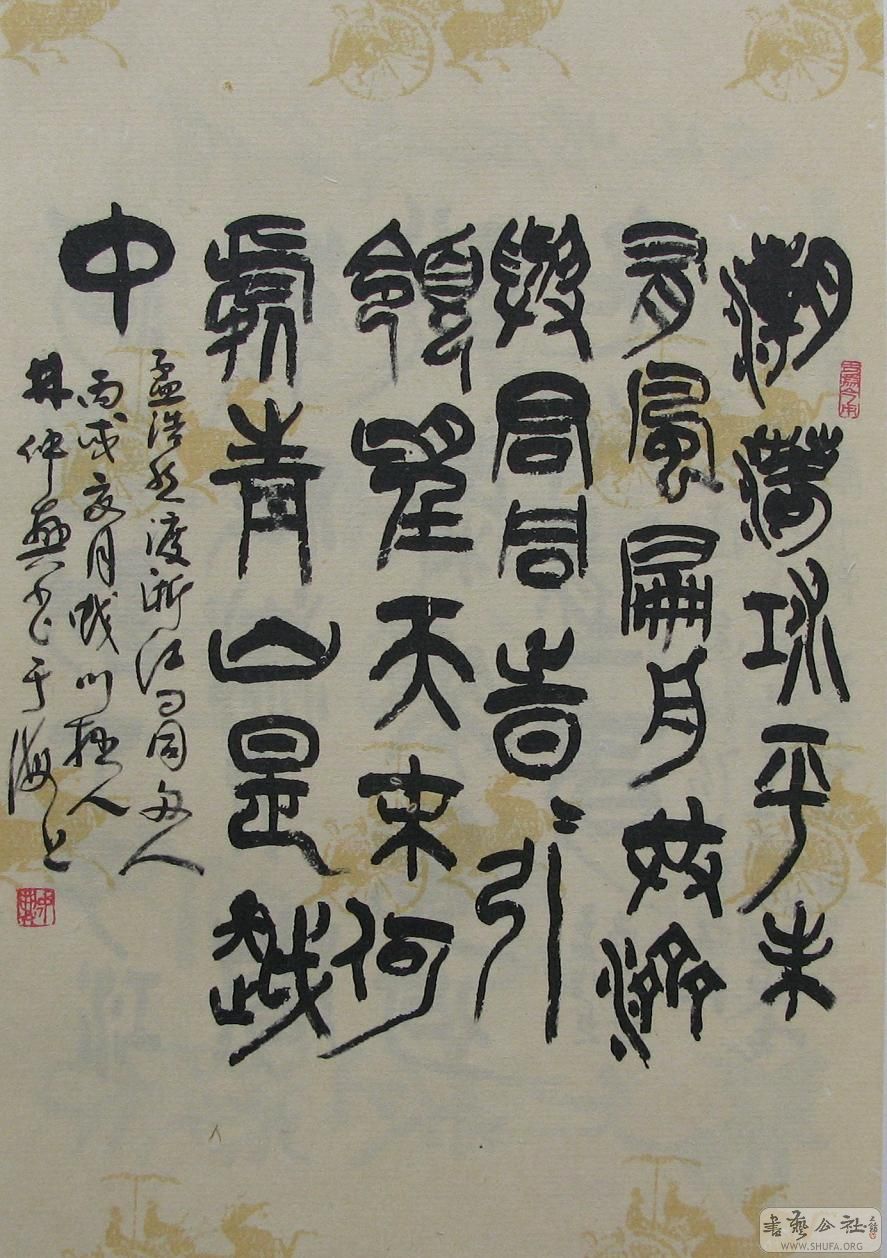 潮落江平未
有風扁舟共濟
與君同時=引
領望天末何
處青山是越
中
孟浩然渡浙江問同舟人
丙戌夏月 川 人
仲興書于海上
書藝公社
WWW.SHUFA.ORG